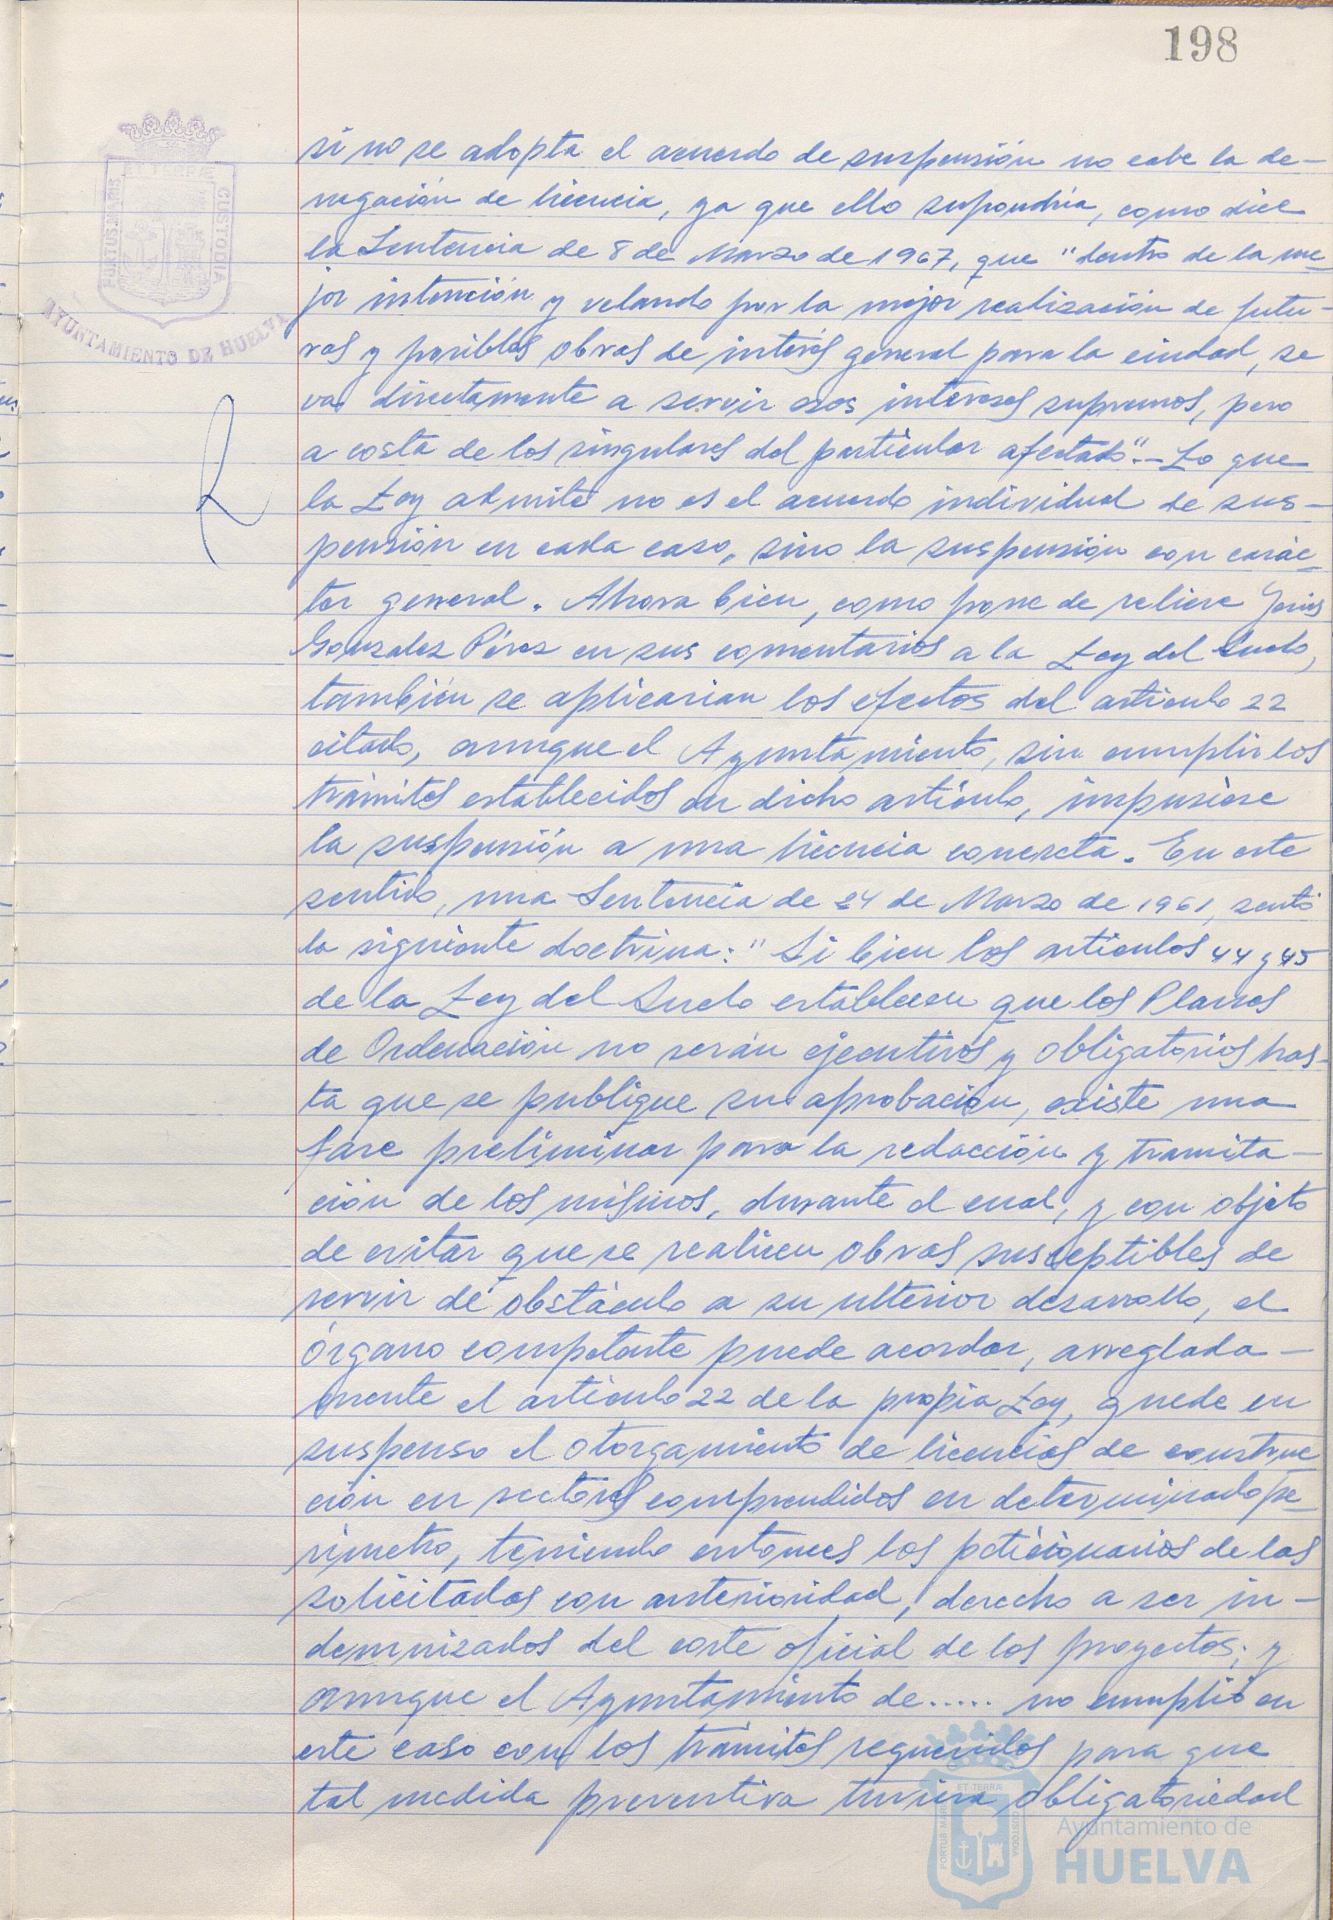 198
ET TERRÆ
PORTUS MARIS
CUSTODIA
AYUNTAMIENTO DE HUELVA
si no se adopta el acuerdo de suspensión no cabe la de-
negación de licencia, ya que ello supondría, como dice
la Sentencia de 8 de Marzo de 1967, que "dentro de la me-
jor intención y velando por la mejor realización de futu-
ras y posibles obras de interés general para la ciudad, se
va directamente a servir esos intereses supremos, pero
a costa de los singulares del particular afectado".- Lo que
la Ley admite no es el acuerdo individual de sus-
pensión en cada caso, sino la suspensión con carác-
ter general. Ahora bien, como pone de relieve Jesús
González Pérez en sus comentarios a la Ley del Suelo,
también se aplicarian los efectos del artículo 22
citado, aunque el Ayuntamiento, sin cumplir los
trámites establecidos en dicho artículo, impusiese
la suspensión a una licencia concreta. En este
sentido, una Sentencia de 24 de Marzo de 1961, sentó
la siguiente doctrina: "Si bien los artículos 44 y 45
de la Ley del Suelo establecen que los Planes
de Ordenación no serán ejecutivos y obligatorios has-
ta que se publique su aprobación, existe una
fase preliminar para la redacción y tramita-
ción de los mismos, durante el cual, y con objeto
de evitar que se realicen obras susceptibles de
servir de obstáculo a su ulterior desarrollo, el
órgano competente puede acordar, arreglada-
mente el artículo 22 de la propia Ley, quede en
suspenso el otorgamiento de licencias de construc
ción en sectores comprendidos en determinado pe-
rímetro, teniendo entonces los peticionarios de las
solicitadas con anterioridad, derecho a ser in-
demnizados del coste oficial de los proyectos; y
aunque el Ayuntamiento de..... no cumplió en
este caso con los trámites requeridos para que
tal medida preventiva tuviera obligatoriedad
ET TERRÆ
PORTUS MARIS
CUSTODIA
Ayuntamiento de
HUELVA